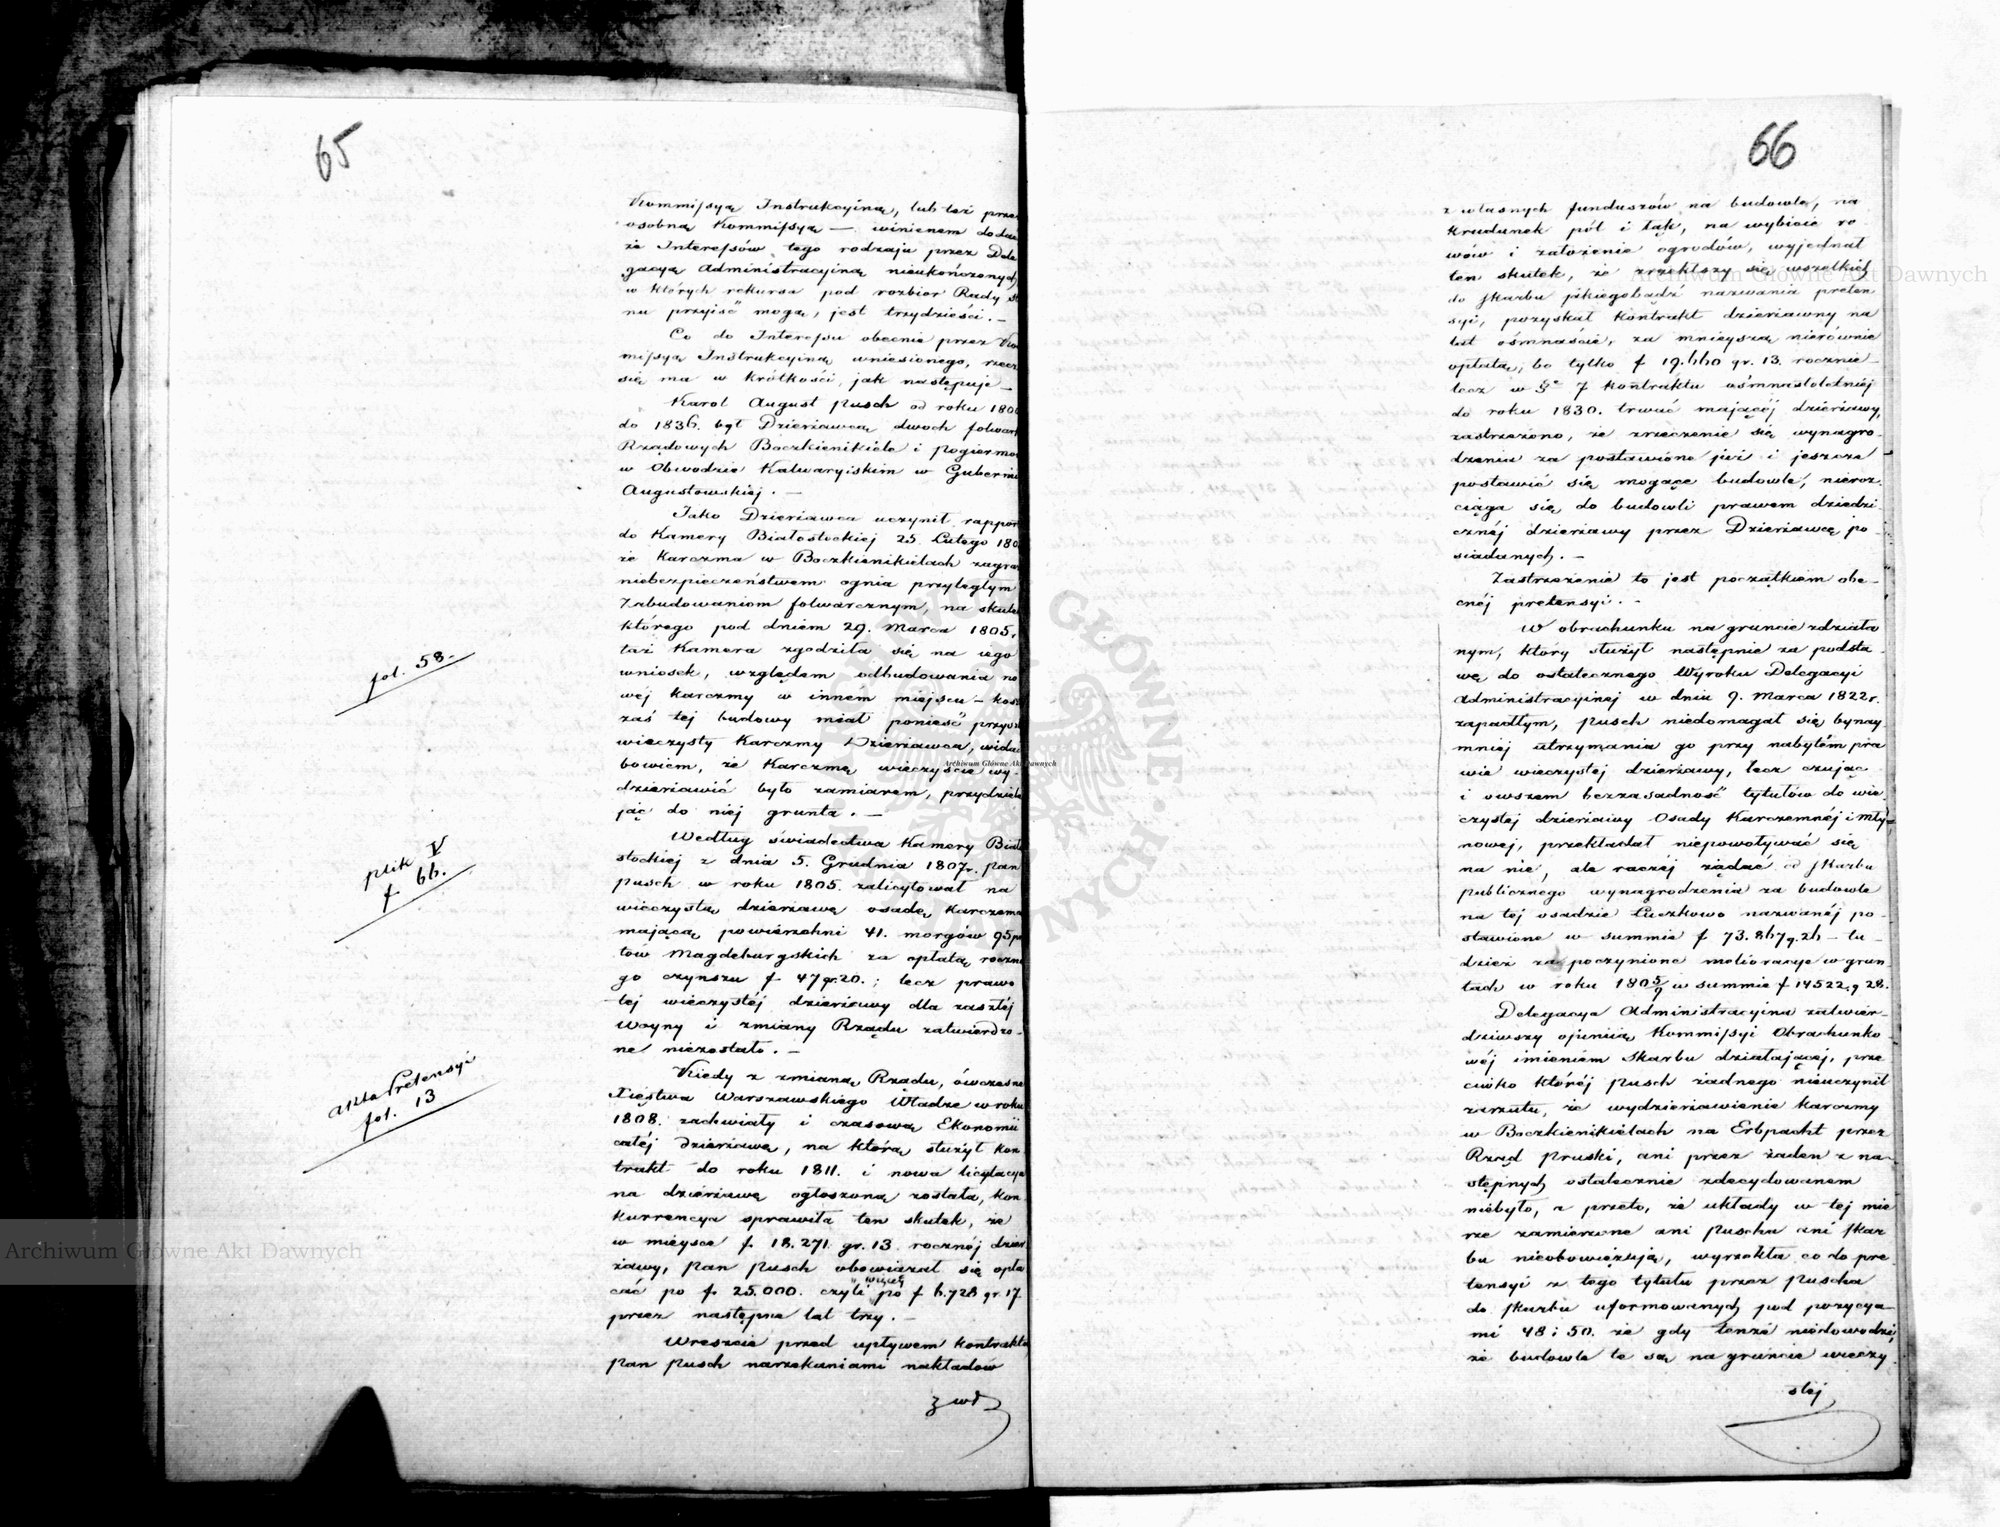 65
Kommissyą Instrukcyiną, lub też prze
osobną Kommissyą — winienem doda
że Interessów tego rodzaju przez Dele
gacyą Administracyiną nieukończonych
w których rekursa pod rozbiór Rady
nu przyiść mogą, jest trzydzieści. —
Co do Interessu obecnie przez Kom
missyą Instrukcyiną wniesionego, rzecz
się ma w krótkości, jak następuje —
Karol August Pusch od roku 180
do 1836. był Dzierżawcą dwóch folwar
Rządowych Boczkienikiele i Pogiermo
w Obwodzie Kalwaryiskim w Gubernii
Augustowskiej. —
Jako Dzierżawca uczynił rapport
do Kamery Białostockiej 25. Lutego 180
że karczma w Boczkienikielach zagra
niebezpieczeństwem ognia przyległym
zabudowaniom folwarcznym, na skutek
którego pod dniem 29. Marca 1805.
taż Kamera zgodziła się na iego
wniosek, względem odbudowania no
wej karczmy w inném miejscu — kosz
zaś tej budowy miał ponieść przysz
wieczysty karczmy Dzierżawca, widać
bowiem, że karczmę wieczyście wy-
dzierżawić było zamiarem, przydziela
jąc do niej grunta. —
fol. 58.
Według świadectwa Kamery Biało
stockiej z dnia 5. Grudnia 1807r. Pan
Pusch w roku 1805. zalicytował na
wieczystą dzierżawę osadę karczemną
mającą powierzchni 41. morgów 95 prę
tów Magdeburgskich za opłatą roczne
go czynszu f 47 gr. 20.; lecz prawo
tej wieczystéj dzierżawy dla zaszłéj
woyny i zmiany Rządu zatwierdzo-
ne niezostało. —
plik V
f 66.
Kiedy z zmianą Rządu, ówczesne
Xięstwa Warszawskiego Władze w roku
1808. zachwiały i czasową Ekonomii
całéj dzierżawę, na którą służył kon
trakt do roku 1811. i nowa licytacya
na dzierżawę ogłoszoną została, kon
kurrencya sprawiła ten skutek, że
w mieysce f 18.271. gr. 13. rocznéj dzier
żawy, Pan Pusch obowiązał się opła
cać po f 25.000. czyli więcéj po f 6.728 gr. 17.
przez następne lat trzy. —
akta Pretensyi
fol. 13
Wreszcie przed upływem kontraktu
Pan Pusch narzekaniami nakładów
z wł
66
z własnych funduszów na budowle, na
krudunek pól i łąk, na wybicie ro
wów i założenie ogrodów, wyjednał
ten skutek, że zrzekłszy się wszelkich
do Skarbu jakiegobądź nazwania preten
syi, pozyskał kontrakt dzierżawny na
lat ośmnaście, za mnieyszą nierównie
opłatą, bo tylko f 19.660 gr. 13. rocznie —
lecz w §e 7 kontraktu ośmnastoletniéj
do roku 1830. trwać mającéj dzierżawy,
zastrzeżono, że zrzeczenie się wynagro-
dzenia za postawione już i jeszcze
postawić się mogące budowle, nieroz-
ciąga się do budowli prawem dziedzi-
cznéj dzierżawy przez Dzierżawcę po-
siadanych. —
Zastrzeżenie to jest początkiem obe-
cnéj pretensyi. —
W obrachunku na gruncie zdziała
nym, który służył następnie za podsta-
wę do ostatecznego Wyroku Delegacyi
Administracyinej w dniu 9. Marca 1822r.
zapadłym, Pusch niedomagał się bynay
mniej utrzymania go przy nabytém pra
wie wieczystej dzierżawy, lecz czując
i owszem bezzasadność tytułów do wie-
czystej dzierżawy Osady Karczemnéj i Mły-
nowej, przekładał niepowoływać się
na nie, ale raczéj żądać od Skarbu
publicznego wynagrodzenia za budowle
na tej osadzie Luczkowo nazwanéj po-
stawione w summie f 73.867 g. 26 — tu-
dzież za poczynione melioracye w grun-
tach w roku 1805/9 w summie f 14522. g 28.
Delegacya Administracyina zatwier-
dziwszy opinią Kommissyi Obrachunko
wéj imieniem Skarbu działającéj, prze
ciwko któréj Pusch żadnego nieuczynił
zarzutu, że wydzierżawienie karczmy
w Boczkienikielach na Erbpacht przez
Rząd Pruski, ani przez żaden z na-
stępnych ostatecznie zdecydowanem
niebyło, a przeto, że układy w tej mie
rze zamierzone ani Puscha ani Skar
bu nieobowięzują, wyrzekła co do pre
tensyi z tego tytułu przez Puscha
do Skarbu uformowanych pod pozycya-
mi 48 i 50. że gdy tenże niedowodzi,
że budowle te są na gruncie wieczy
stéj
Archiwum Główne Akt Dawnych
Archiwum Główne Akt Dawnych
Archiwum Główne Akt Dawnych